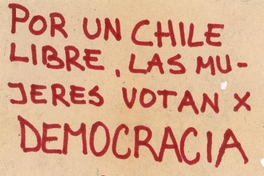 POR UN CHILE
LIBRE, LAS MU-
JERES VOTAN X
DEMOCRACIA